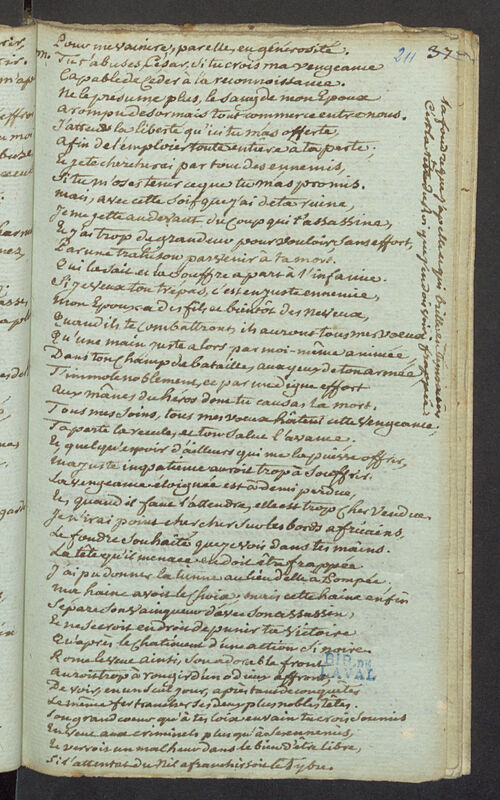 211 37
Pour me vaincre, par elle, en générosité.
m. Tu t'abuses, César, si tu crois ma vengeance
Capable de céder à la reconnoissance.
Ne le présume plus, le sang de mon Epoux
A rompu désormais tout commerce entre nous.
J'attends la liberté qu'ici tu m'as offerte,
Afin de l'employer toute entiere à ta perte;
Et je te chercherai par tout des ennemis,
Si tu m'oses tenir ce que tu m'as promis.
Mais, avec cette soif que j'ai de ta ruine,
Je me jette au devant du coup qui t'assassine,
Et j'ai trop de grandeur pour vouloir sans effort,
Par une trahison parvenir à ta mort.
Qui la sait et la souffre a part à l'infamie.
Si je veux ton trépas, c'est en juste ennemie,
Mon Epoux a des fils et bientôt des Neveux,
Quand ils te combattront, ils auront tous mes voeux
Qu'une main juste alors, par moi-même animée,
Dans ton Champ de bataille, aux yeux de ton armée,
T'immole noblement, et par un digne effort
Aux mânes du héros dont tu causas la mort.
Tous mes soins, tous mes voeux hâtent cette vengeance,
Ta perte la recule, et ton salut l'avance.
Et, quelqu'espoir d'ailleurs qui me la puisse offrir,
Ma juste impatience auroit trop à souffrir.
La vengeance éloignée est à demi perdue,
Et, quand il faut l'attendre, elle est trop cher vendue.
Je n'irai point chercher sur les bords africains,
Le foudre souhaité que je vois dans tes mains.
La tête qu'il menace en doit être frappée
J'ai pu donner la tienne au lieu d'elle à Pompée,
Ma haine avoit le choix, mais cette haine enfin
Sépare son vainqueur d'avec son assassin,
Et ne se croit en droit de punir ta victoire
Qu'après le chatiment d'une action si noire.
Rome le veut ainsi, son adorable front
Auroit trop à rougir d'un odieux affront
De voir, en un seul jour, après tant de conquêtes
Le même fer trancher ses deux plus nobles têtes.
Son grand coeur, qu'à tes loix en vain tu crois soumis
En veut aux criminels plus qu'à ses ennemis,
Et verroit un malheur dans le bien d'être libre,
Si l'attentat du Nil affranchissoit le Tybre.
BIB. DE
LAVAL